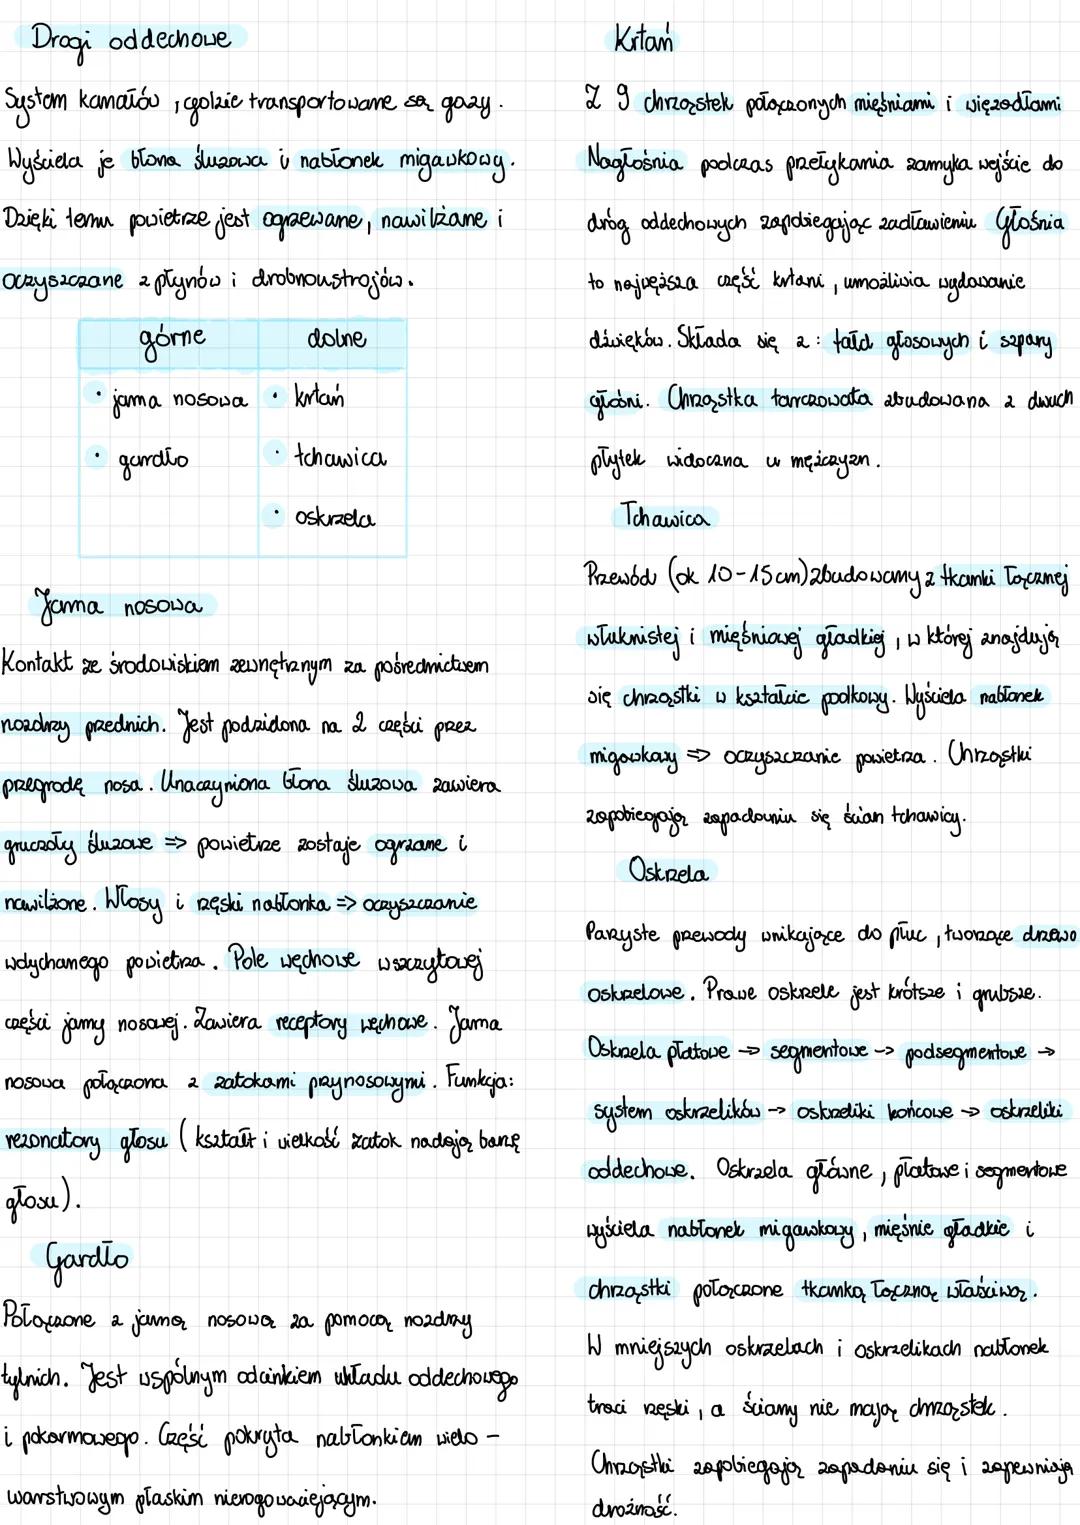 Drogi oddechowe
System kanałów, gdzie transportowane są gazy.
Wyściela je błona śluzowa i nabłonek migawkowy.
Dzięki temu powietrze jest ogrzewane, nawilżane i
oczyszczane z płynów i drobnoustrojów.
górne dolne
• jama nosowa • krtań
• gardło • tchawica
• oskrzela
Jama nosowa
Kontakt ze środowiskiem zewnętrznym za pośrednictwem
nozdrzy przednich. Jest podzielona na 2 części przez
przegrodę nosa. Unaczyniona błona śluzowa zawiera
gruczoły śluzowe => powietrze zostaje ogrzane i
nawilżone. Włosy i rzęski nabłonka => oczyszczanie
wdychanego powietrza. Pole węchowe w szczytowej
części jamy nosowej. Zawiera receptory węchowe. Jama
nosowa połączona z zatokami przynosowymi. Funkcja:
rezonatory głosu (kształt i wielkość zatok nadają barwę
głosu).
Gardło
Połączone z jamą nosową za pomocą nozdrzy
tylnich. Jest wspólnym odcinkiem układu oddechowego
i pokarmowego. Część pokryta nabłonkiem wielo-
warstwowym płaskim nierogowaciejącym.
Krtań
Z 9 chrząstek połączonych mięśniami i więzadłami
Nagłośnia podczas przełykania zamyka wejście do
dróg oddechowych zapobiegając zadławieniu Głośnia
to najwęższa część krtani, umożliwia wydawanie
dźwięków. Składa się z: fałd głosowych i szpary
głośni. Chrząstka tarczowata zbudowana z dwuch
płytek widoczna u mężczyzn.
Tchawica
Przewód (ok 10-15 cm) zbudowany z tkanki łącznej
włuknistej i mięśniowej gładkiej, w której znajdują
się chrząstki w kształcie podkowy. Wyściela nabłonek
migawkowy => oczyszczanie powietrza. Chrząstki
zapobiegają zapadaniu się ścian tchawicy.
Oskrzela
Parzyste przewody wnikające do płuc, tworzące drzewo
oskrzelowe. Prawe oskrzele jest krótsze i grubsze.
Oskrzela płatowe → segmentowe → podsegmentowe →
system oskrzelików → oskrzeliki końcowe → oskrzeliki
oddechowe. Oskrzela główne, płatowe i segmentowe
wyściela nabłonek migawkowy, mięśnie gładkie i
chrząstki połączone tkanką łączną właściwą.
W mniejszych oskrzelach i oskrzelikach nabłonek
traci rzęski, a ściany nie mają chrząstek.
Chrząstki zapobiegają zapadaniu się i zapewniają
drożność.